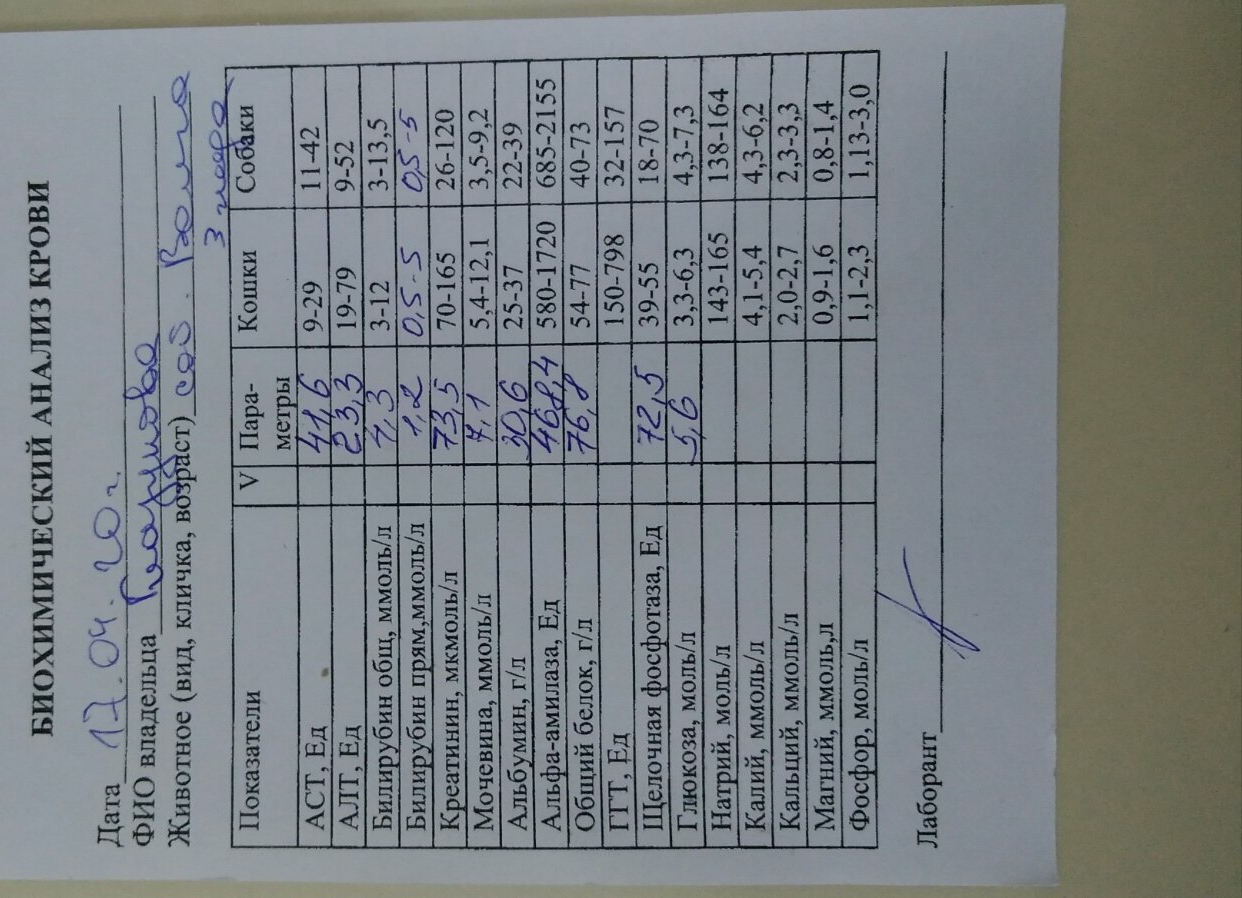 БИОХИМИЧЕСКИЙ АНАЛИЗ КРОВИ
Дата 17.04.20г.
ФИО владельца
Животное (вид, кличка, возраст) соб.
3
Показатели V Пара-метры Кошки Собаки
АСТ, Ед 41,6 9-29 11-42
АЛТ, Ед 23,3 19-79 9-52
Билирубин общ, ммоль/л 4,3 3-12 3-13,5
Билирубин прям,ммоль/л 1,2 0,5-5 0,5-5
Креатинин, мкмоль/л 73,5 70-165 26-120
Мочевина, ммоль/л 7,1 5,4-12,1 3,5-9,2
Альбумин, г/л 30,6 25-37 22-39
Альфа-амилаза, Ед 468,4 580-1720 685-2155
Общий белок, г/л 76,8 54-77 40-73
ГГТ, Ед 150-798 32-157
Щелочная фосфотаза, Ед 72,5 39-55 18-70
Глюкоза, моль/л 5,6 3,3-6,3 4,3-7,3
Натрий, моль/л 143-165 138-164
Калий, ммоль/л 4,1-5,4 4,3-6,2
Кальций, ммоль/л 2,0-2,7 2,3-3,3
Магний, ммоль,л 0,9-1,6 0,8-1,4
Фосфор, моль/л 1,1-2,3 1,13-3,0
Лаборант